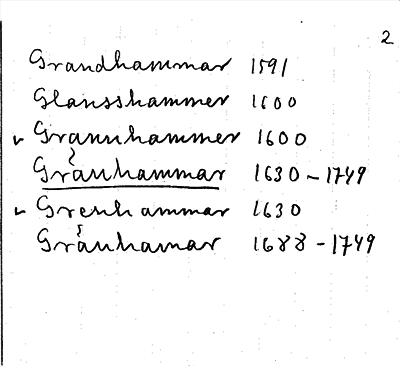 2
Grandhammar 1591
Glansshammer 1600
v Grannhammer 1600
Granhammar 1630-1749
v Grenhammar 1630
Granhamar 1688-1749